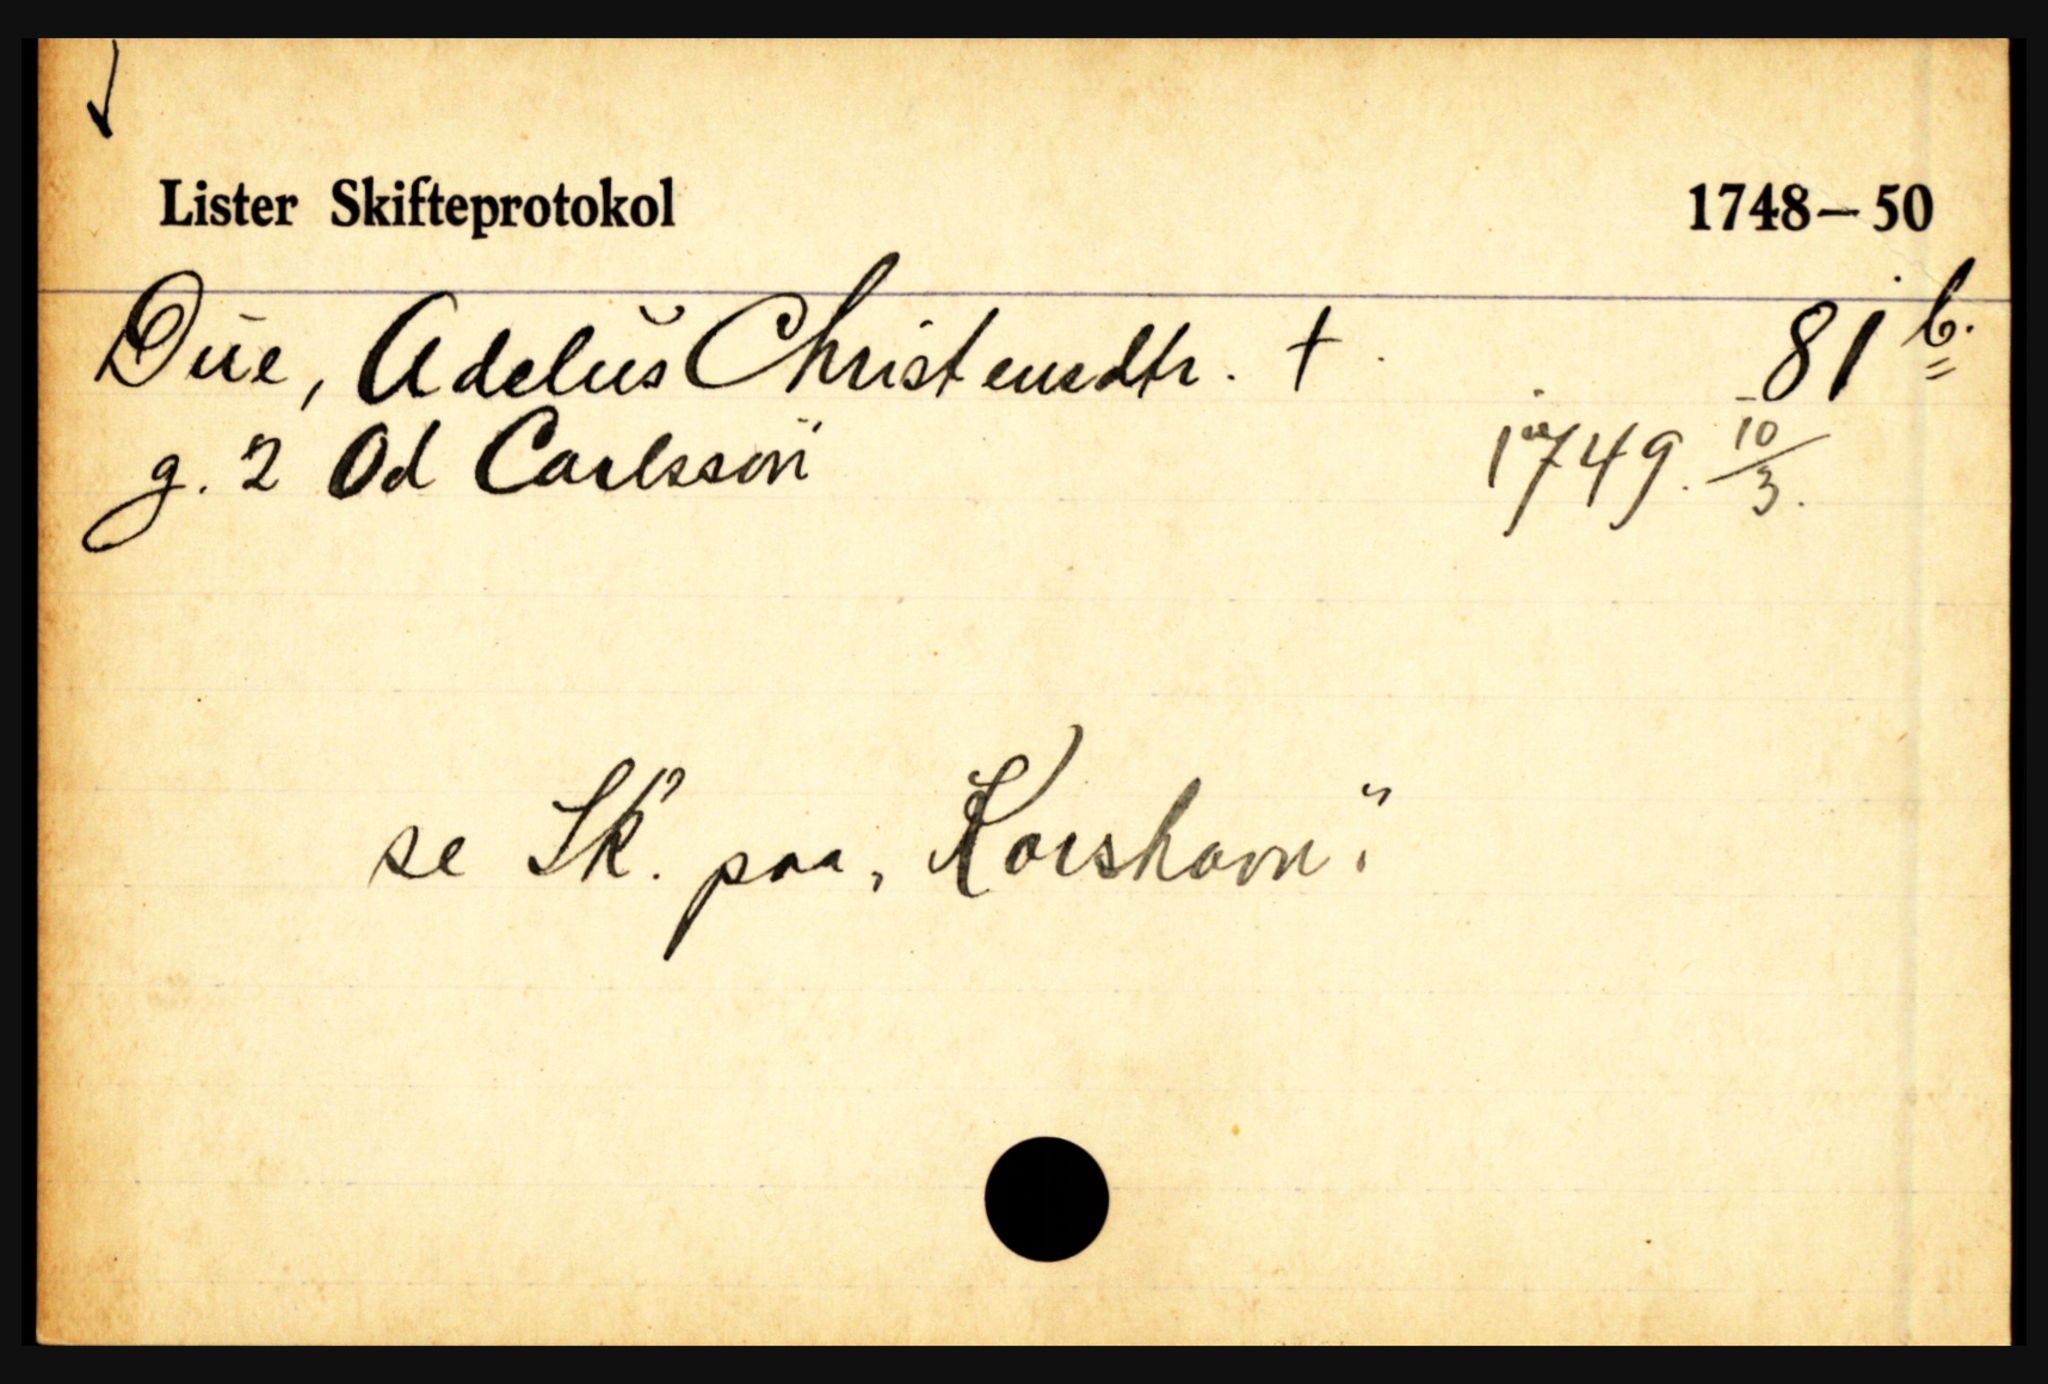 Lister Skifteprotokol 1748-50
Due, Adelus Christensdtr. † 81 b.
g. 2 Od Carlsson 1749. 10/3.
se Sk. paa „Korshavn"